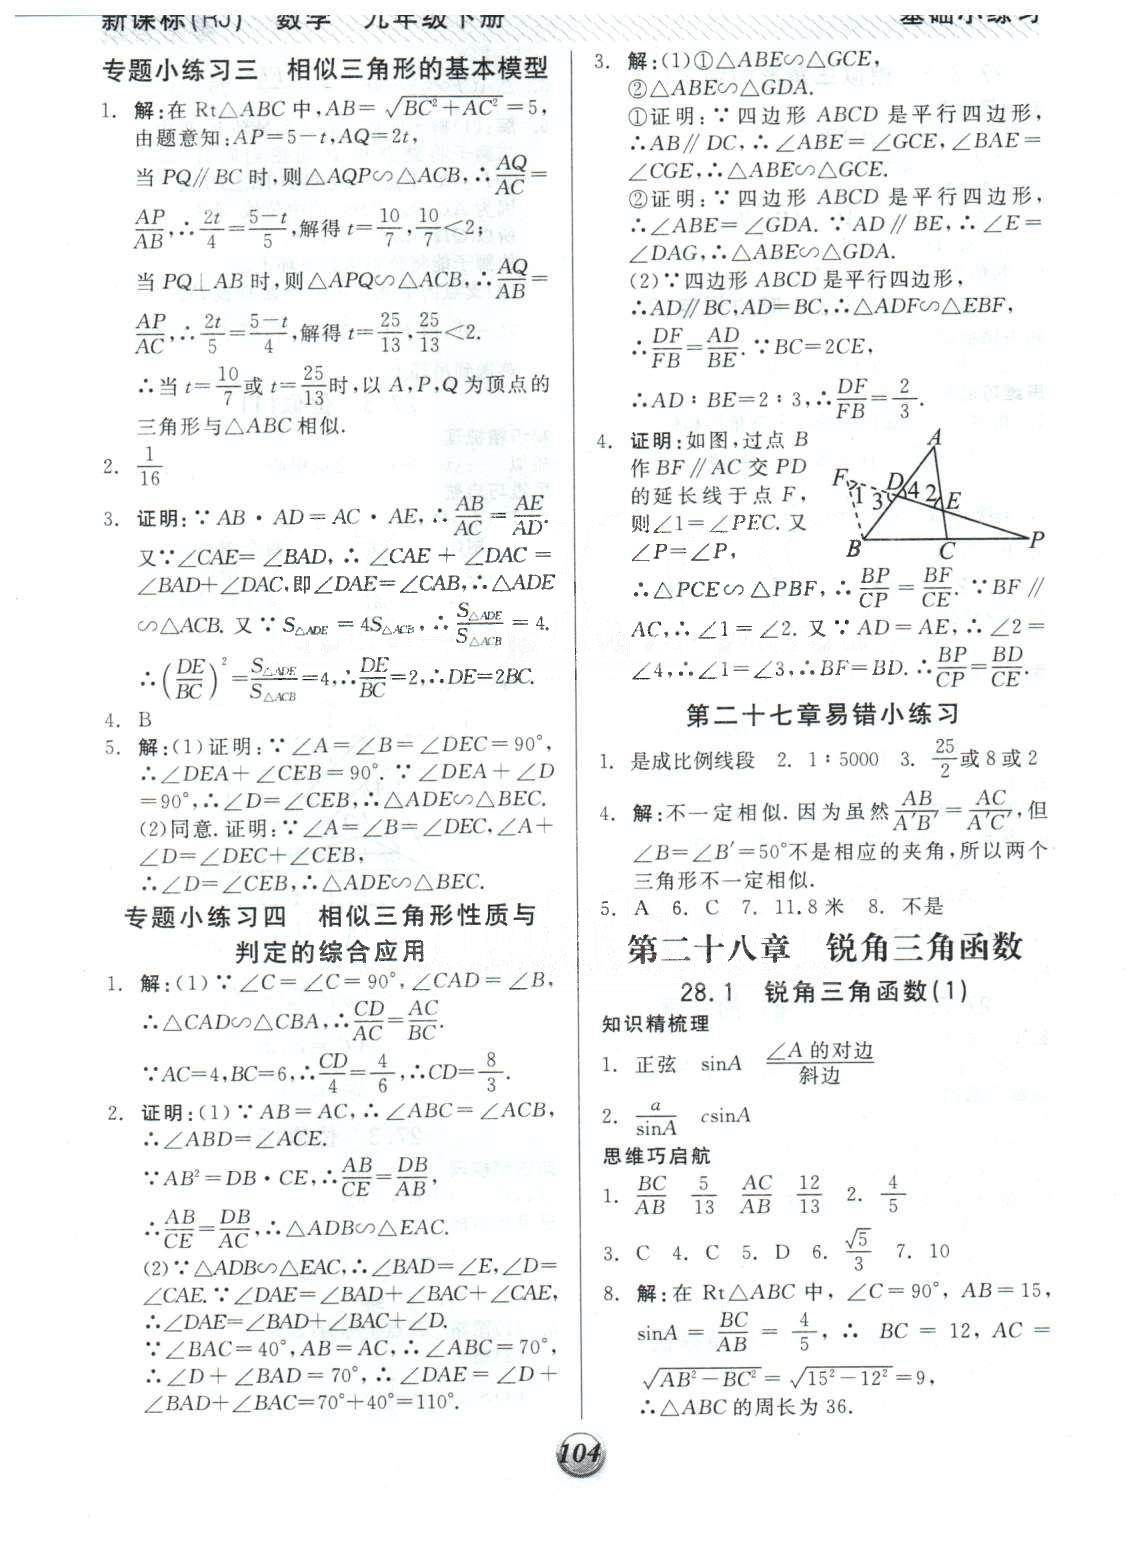 新课标(RJ) 数学 九年级下册
基础小练习
专题小练习三 相似三角形的基本模型
1. 解:在 Rt△ABC 中,AB= √(BC²+AC²) =5,
由题意知:AP=5-t,AQ=2t,
当 PQ∥BC 时,则△AQP∽△ACB,∴AQ/AC=
AP/AB,∴2t/4=(5-t)/5,解得 t=10/7,10/7<2;
当 PQ⊥AB 时,则△APQ∽△ACB,∴AQ/AB=
AP/AC,∴2t/5=(5-t)/4,解得 t=25/13,25/13<2.
∴当 t=10/7或 t=25/13时,以 A,P,Q 为顶点的
三角形与△ABC 相似.
2. 1/16
3. 证明:∵AB·AD=AC·AE,∴AB/AC=AE/AD.
又∵∠CAE=∠BAD,∴∠CAE+∠DAC=
∠BAD+∠DAC,即∠DAE=∠CAB,∴△ADE
∽△ACB. 又∵S△ADE=4S△ACB,∴S△ADE/S△ACB=4.
∴(DE/BC)²=S△ADE/S△ACB=4,∴DE/BC=2,∴DE=2BC.
4. B
5. 解:(1)证明:∵∠A=∠B=∠DEC=90°,
∴∠DEA+∠CEB=90°.∵∠DEA+∠D
=90°,∴∠D=∠CEB,∴△ADE∽△BEC.
(2)同意.证明:∵∠A=∠B=∠DEC,∠A+
∠D=∠DEC+∠CEB,
∴∠D=∠CEB,∴△ADE∽△BEC.
专题小练习四 相似三角形性质与
判定的综合应用
1. 解:(1)∵∠C=∠C=90°,∠CAD=∠B,
∴△CAD∽△CBA,∴CD/AC=AC/BC.
∵AC=4,BC=6,∴CD/4=4/6,∴CD=8/3.
2. 证明:(1)∵AB=AC,∴∠ABC=∠ACB,
∴∠ABD=∠ACE.
∵AB²=DB·CE,∴AB/CE=DB/AB,
∴AB/CE=DB/AC,∴△ADB∽△EAC.
(2)∵△ADB∽△EAC,∴∠BAD=∠E,∠D=
∠CAE.∵∠DAE=∠BAD+∠BAC+∠CAE,
∴∠DAE=∠BAD+∠BAC+∠D.
∵∠BAC=40°,AB=AC,∴∠ABC=70°,
∴∠D+∠BAD=70°,∴∠DAE=∠D+
∠BAD+∠BAC=70°+40°=110°.
3. 解:(1)①△ABE∽△GCE,
②△ABE∽△GDA.
①证明:∵四边形 ABCD 是平行四边形,
∴AB∥DC,∴∠ABE=∠GCE,∠BAE=
∠CGE,∴△ABE∽△GCE.
②证明:∵四边形 ABCD 是平行四边形,
∴∠ABE=∠GDA.∵AD∥BE,∴∠E=
∠DAG,∴△ABE∽△GDA.
(2)∵四边形 ABCD 是平行四边形,
∴AD∥BC,AD=BC,∴△ADF∽△EBF,
∴DF/FB=AD/BE.∵BC=2CE,
∴AD∶BE=2∶3,∴DF/FB=2/3.
4. 证明:如图,过点 B
作 BF∥AC 交 PD
的延长线于点 F,
则∠1=∠PEC. 又
∠P=∠P,
A
F
D
1
3
4
2
E
B
C
P
∴△PCE∽△PBF,∴BP/CP=BF/CE.∵BF∥
AC,∴∠1=∠2. 又∵AD=AE,∴∠2=
∠4,∴∠1=∠3,∴BF=BD.∴BP/CP=BD/CE.
第二十七章易错小练习
1. 是成比例线段 2. 1∶5000 3. 25/2或 8 或 2
4. 解:不一定相似.因为虽然AB/A′B′=AC/A′C′,但
∠B=∠B′=50°不是相应的夹角,所以两个
三角形不一定相似.
5. A 6. C 7. 11.8 米 8. 不是
第二十八章 锐角三角函数
28.1 锐角三角函数(1)
知识精梳理
1. 正弦 sinA ∠A 的对边/斜边
2. a/sinA csinA
思维巧启航
1. BC/AB 5/13 AC/AB 12/13 2. 4/5
3. C 4. C 5. D 6. √5/3 7. 10
8. 解:在 Rt△ABC 中,∠C=90°,AB=15,
sinA=BC/AB=4/5,∴BC=12,AC=
√(AB²-BC²)=√(15²-12²)=9,
∴△ABC 的周长为 36.
104